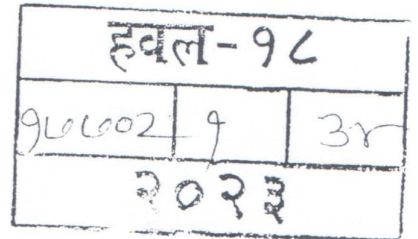 हवल-१८
१७७०२ १ ३४
२०२३